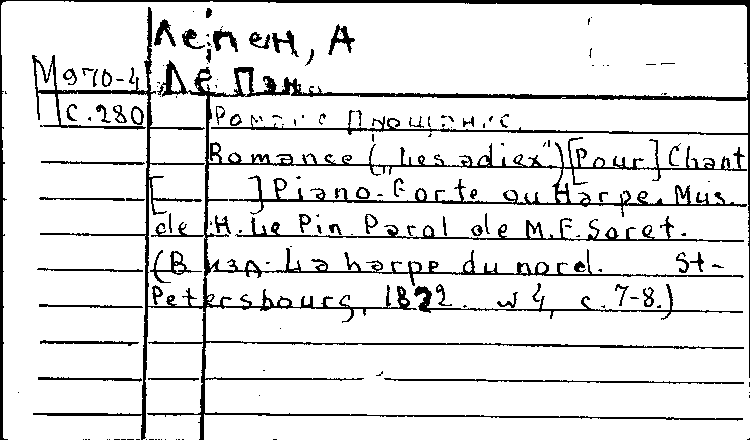 Лепен, А
М970-4 Ле Пэн.
с.280 Романс Прощание.
Romance („Les adiex") [Pour] Chant
[ ] Piano-Forte ou Harpe. Mus.
de H. Le Pin Parol de M.F. Soret.
(В изд. La harpe du nord. St-
Petersbourg, 1822. № 4, с. 7-8.)